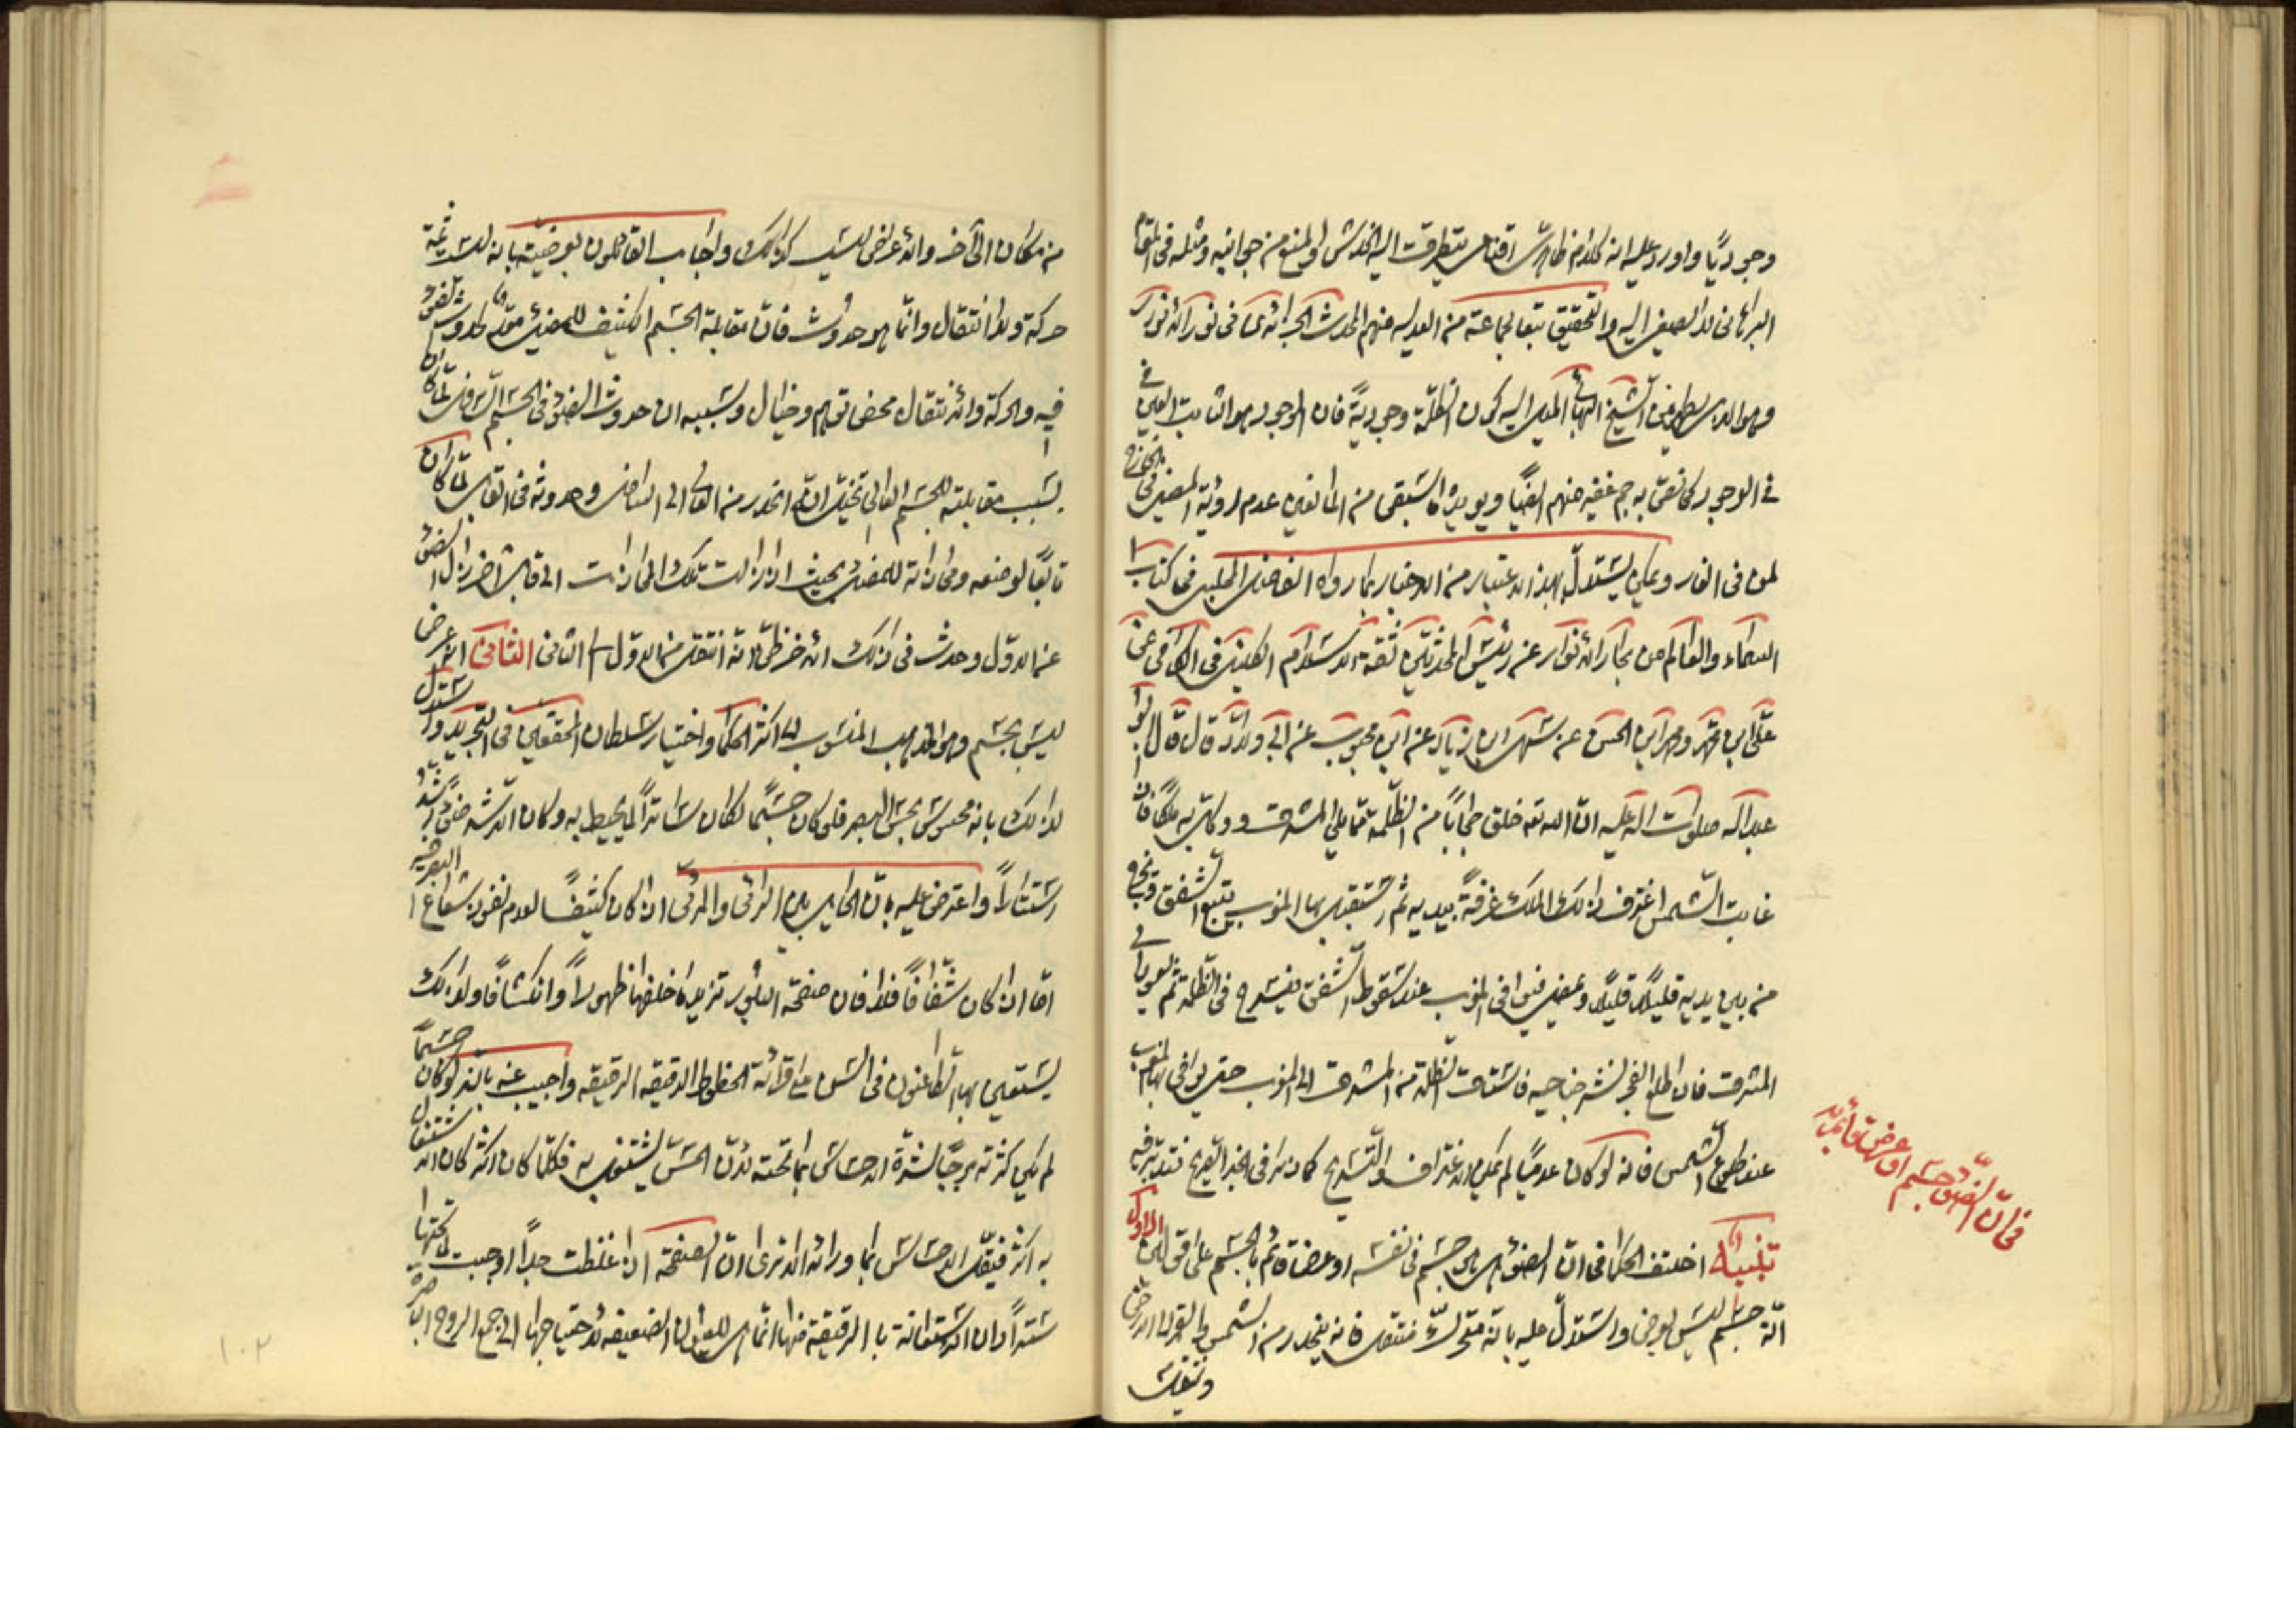 وجوديّا واورد عليه انه كلام ظاهرىّ اقناعى يتطرقت اليه الخدش والمنع من جوانبه ومثله فى المقام
البرهانى لا يصغى اليه والتحقيق تبعا لجماعة من العدليه منهم المحدث الجزائرى فى نور الانوار
وهو الذى يظهر من الشيخ البهائى الميل اليه كون الظلمة وجوديّة فان الموجود هو الثابت العين فى
فى الوجود كما نصّ به جم غفير منهم ايضًا ويؤيده ما سبق من المانعين عدم رؤية المضىء فى الخارج
لمن فى الغار ويمكن يستدلّ لهذا الاعتبار من الاخبار بما رواه الفاضل المجلسى فى كتاب
السماء والعالم من بحار الانوار عن رئيس المحدثين ثقة الاسلام الكلينى فى الكافى عن
علىّ ابن محمد ومحمد ابن الحسن عن سهل ابن زياد عن ابن محبوب عن ابى ولّاد قال قال ابو
عبد الله صلوات الله عليه انّ الله تعه خلق حجابًا من ظلمة ممّا يلى المشرق ووكّل به ملكًا فاذا
غابت الشّمس اغترف ذلك الملك غرفةً بيديه ثم استقبل بها المغرب يتبع الشفق ويخرج
من بين يديه قليلًا قليلًا ويمضى فيوافى المغرب عند سقوط الشّفق فيسرح فى الظلمة ثم يعود الى
المشرق فاذا طلع الفجر نشر جناحيه فاستاق الظلمة من المشرق الى المغرب حتى يوافى بها المغرب
عند طلوع الشّمس فانه لو كان عدميًا لم يمكن الاغتراف والتّسريح كما نرى فى الخبر الصّريح فتدبّر فيه
تنبيه اختلف الحكماء فى انّ الضوء هل هو جسم فى نفسه او عرض قائم بالجسم على اقوال الاوّل
انّه جسم ليس بعرض واستدلّ عليه بانّه متحرّك منتقل فانه ينحدر من الشمس والقمر الى الارض
وينتقل
فى انّ الضّوء جسم او عرض قائم به
من مكان الى آخر والاعراض ليست كذلك واجاب القائلون بعرضيّته بانه ليست ثمّة
حركة ولا انتقال وانّما هو حدوث فانّ مقابلة الجسم الكثيف للمضىء معدّة لحدوث الضوء
فيه والحركة والانتقال محض توهم وخيال وسببيه ان حدوث الضوء فى الجسم السّافل لمّا كان
بسبب مقابلته للجسم العالى تخيّل انّه انحدر من العالى الى السافل وحدوثه فى القابل لمّا كان
تابعًا لوضعه ومحاذاته للمضىء بحيث اذا زالت تلك المحاذات الى قابل آخر زال الضوء
عن الاوّل وحدث فى ذلك الآخر ظنّ انّه انتقل من الاوّل الى الثانى الثانى انّه عرض
ليس بجسم وهو المذهب المنسوب الى اكثر الحكماء واختيار سلطان المحققين فى التجريد واستدل
لذلك بانه محسوس بحسّ البصر فلو كان جسمًا لكان ساترًا لما يحيط به وكان الاشدّ ضوءا اشدّ
استتارًا واعترض عليه بانّ الحايل بين الرائى والمرئى اذا كان كثيفًا لعدم نفوذ شعاع البصر فيه
امّا اذا كان شفّافًا فلا فان صفحة البلّور تزيد ما خلفها ظهورًا وانكشافًا ولذلك
يستعين بها الطاعنون فى السّن على قرائة الخطوط الدقيقه الرقيقه واجيب عنه بانّه لو كان جسمًا
لم يكن كثرته موجبًا لشدّة الاحساس بما تحته لانّ الحسّ يشتغل به فكلّما كان اكثر كان الاشتغال
به اكثر فيقلّ الاحساس بما ورائه الا ترى انّ الصّفحة اذا غلظت جدًّا اوجبت لما تحتها
سترًا وان الاستعانة بالرقيقة منها انّما هى للعيون الضعيفه لاحتياجها الى جمع الروح الباصره
١٠٢